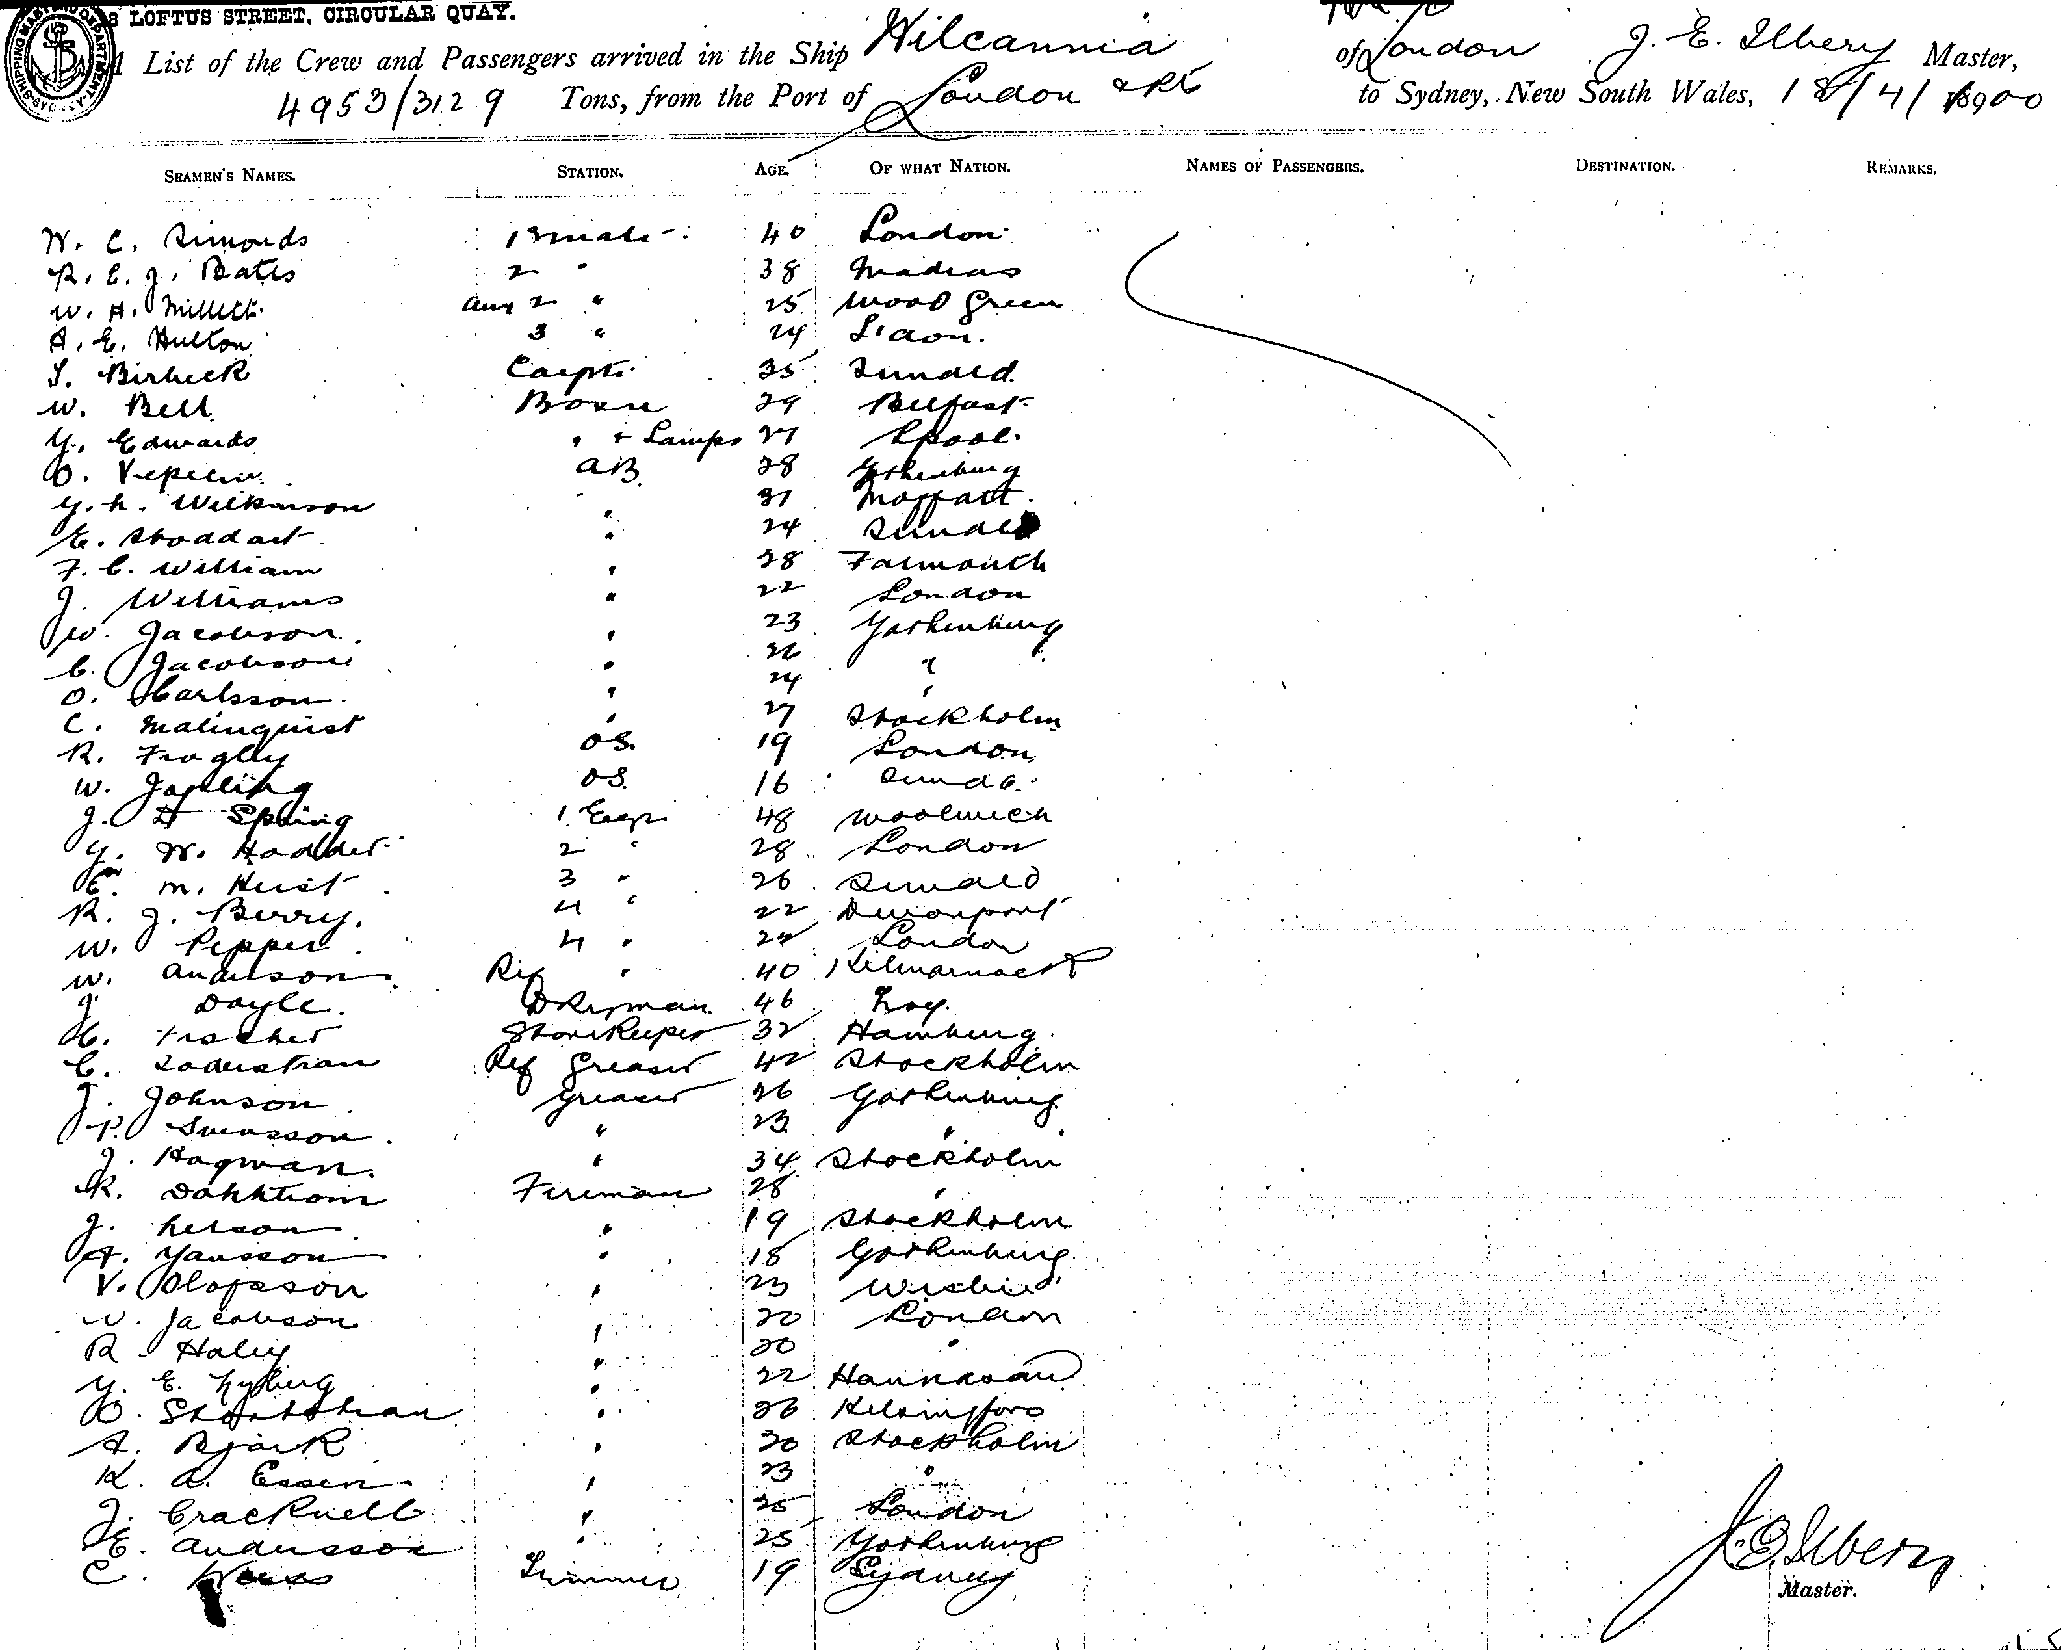 8 LOFTUS STREET, CIRCULAR QUAY.
A List of the Crew and Passengers arrived in the Ship Wilcannia of London J. E. Ilbery Master,
4953/3129 Tons, from the Port of London to Sydney, New South Wales, 18/4/1900
SEAMEN'S NAMES. STATION. AGE. OF WHAT NATION. NAMES OF PASSENGERS. DESTINATION. REMARKS.
W. C. Simonds 1st mate 40 London
R. E. J. Bates 2 " 38 Madras
W. H. Millett Aux 2 " 25 Wood Green
A. E. Hulton 3 " 24
Birbeck Carptr 35 Sunderld
W. Bell Bosn 29 Belfast
G. Edwards " + Lamps 27 Lpool
O. AB 28 Gothenburg
G. H. Wilkinson " 31 Moffatt
E. Stoddart " 24 Sunderld
F. C. William " 28 Falmouth
J. Williams " 22 London
W. Jacobson " 23 Gothenburg
C. Jacobson " 26 "
O. Carlsson " 24 "
C. Malinquist " 27 Stockholm
R. Frogley OS 19 London
W. Jopling OS 16 Sundd
J. H Spring 1 Engr 48 Woolwich
G. W. Hodder 2 " 28 London
E. M. Hurst 3 " 26 Sunderld
R. J. Berry 4 " 22 Devonport
W. Pepper 4 " 24 London
W. Anderson Ref " 40 Kilmarnock
J Doyle Dkeyman 46
H. Fischer Storekeeper 32 Hamburg
C. Soderstrom Ref Greaser 42 Stockholm
J. Johnson Greaser 26 Gothenburg
P. Svensson " 23 "
J. Hagman " 34 Stockholm
K. Dahlstrom Fireman 28 "
J. Nelson " 19 Stockholm
A. Yansson " 18 Gothenburg
V. Olofsson " 23
W. Jacobson " 20 London
R Haley " 20 "
G. E. Nyberg " 22
O. " 26 Helsingfors
A. Bjork " 20 Stockholm
K. A. Essen " 23 "
J. Cracknell " 25 London
E. Andersson " 25 Gothenburg
C. Trimmer 19 Sydney
J. E. Ilbery
Master.